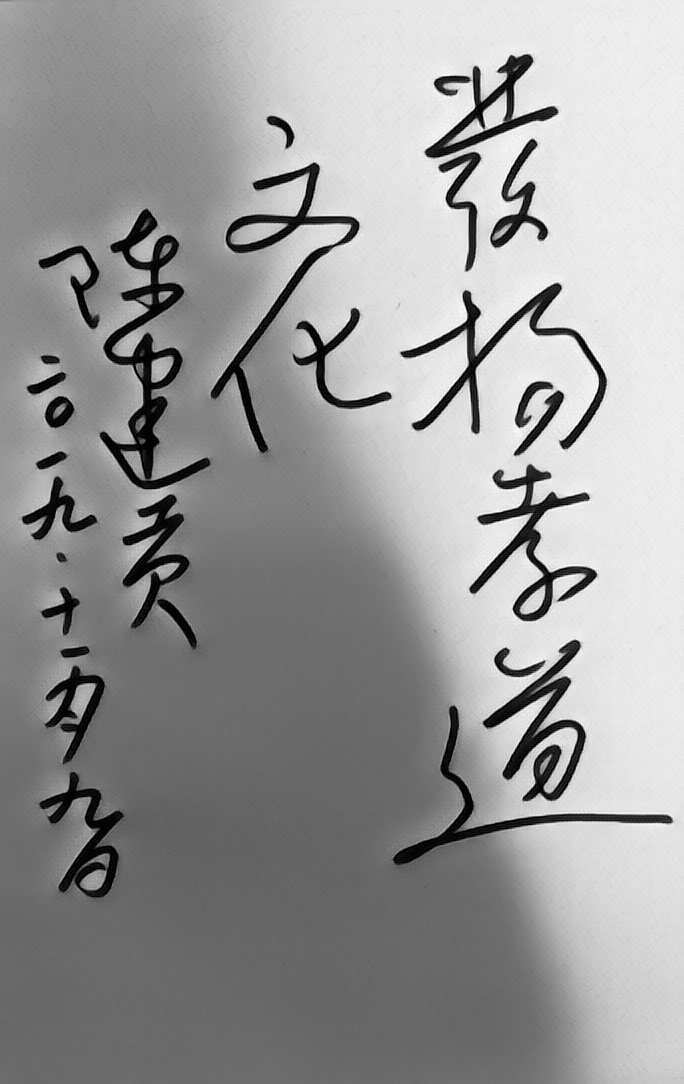 發揚孝道
文化
陈建贡
二〇一九.十一月九日